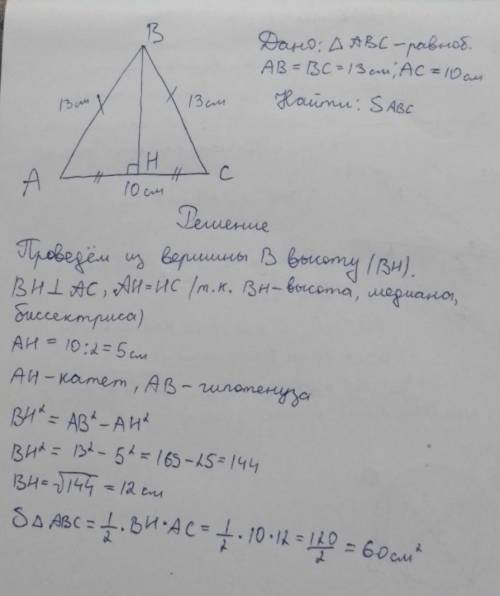 B
Дано: △ABC – равноб.
AB = BC = 13 см; AC = 10 см
13 см
13 см
Найти: S ABC
H
A
C
10 см
Решение
Проведём из вершины B высоту (BH).
BH ⊥ AC, AH = HC (т.к. BH – высота, медиана,
биссектриса)
AH = 10:2 = 5 см
AH – катет, AB – гипотенуза
BH² = AB² – AH²
BH² = 13² – 5² = 169 – 25 = 144
BH = √144 = 12 см
S△ABC = 1/2 · BH · AC = 1/2 · 10 · 12 = 120/2 = 60 см²